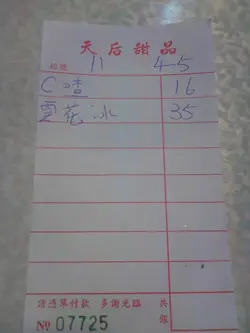 天后甜品
檯號 11 4-5
C喳 16
雪花冰 35
請憑單付款 多謝光臨 共銀
№ 07725